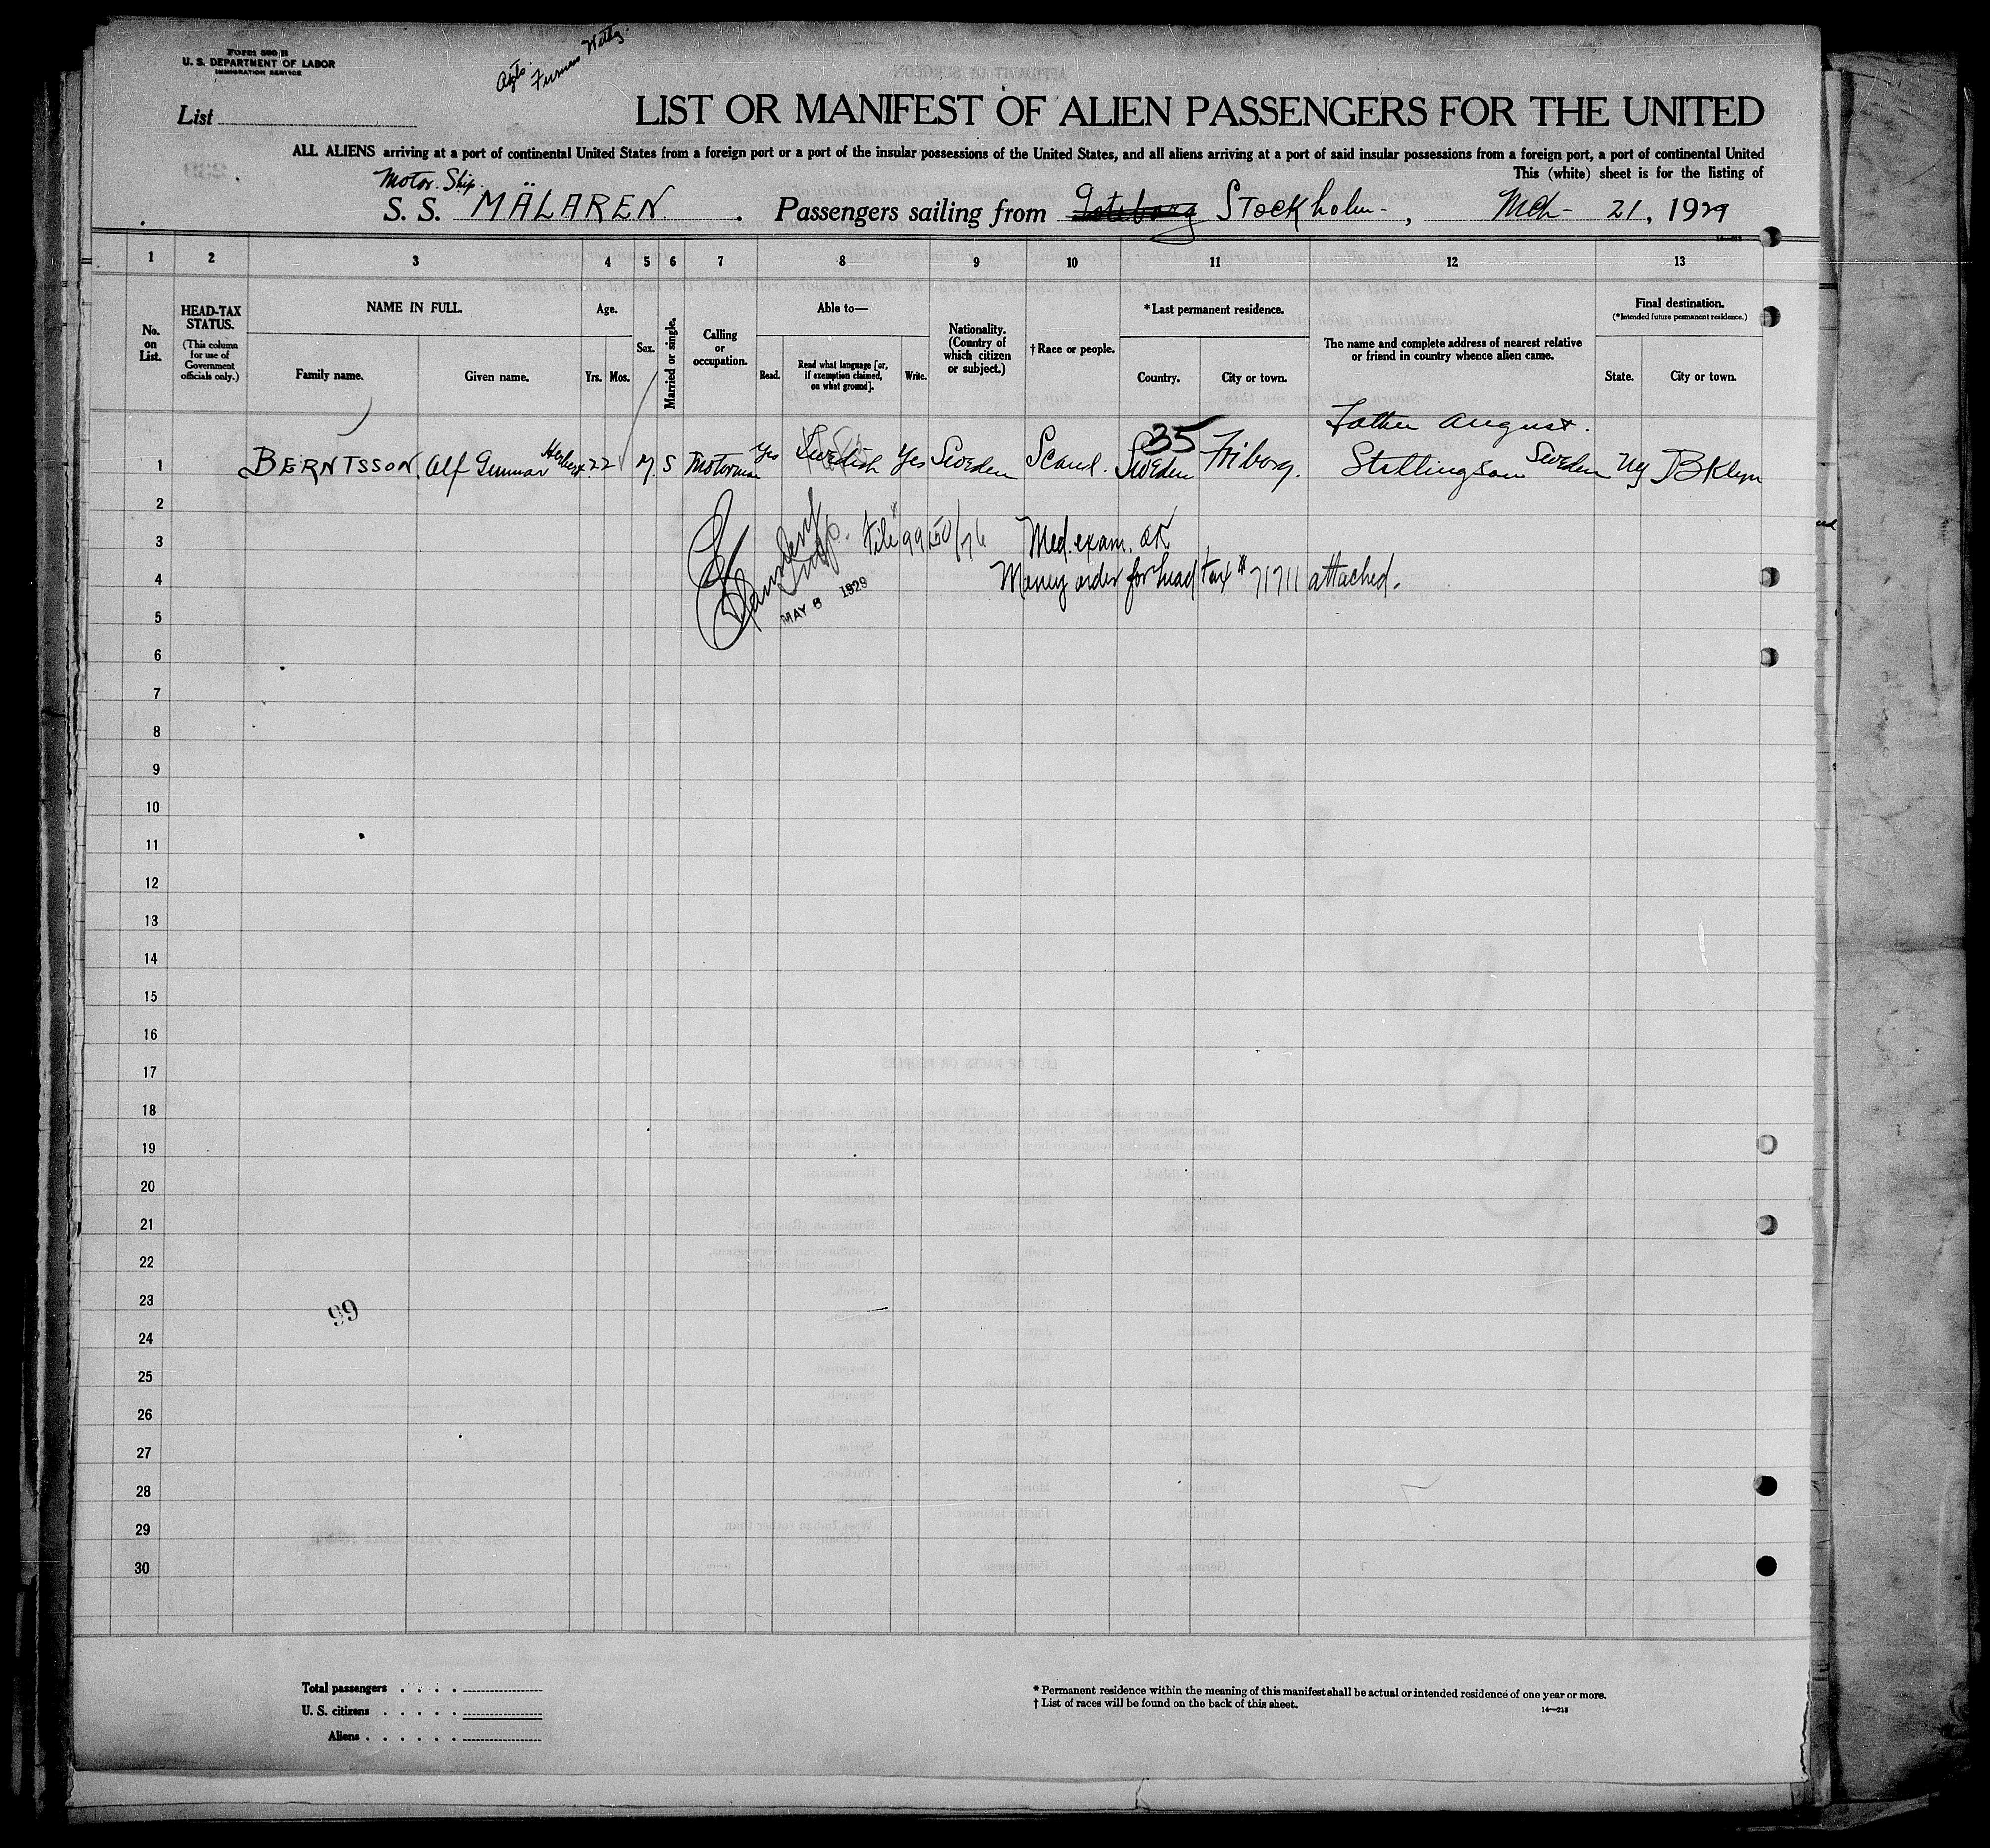 Form 500 B
U. S. DEPARTMENT OF LABOR
IMMIGRATION SERVICE
Agts. Furness Withy.
List
LIST OR MANIFEST OF ALIEN PASSENGERS FOR THE UNITED
ALL ALIENS arriving at a port of continental United States from a foreign port or a port of the insular possessions of the United States, and all aliens arriving at a port of said insular possessions from a foreign port, a port of continental United
This (white) sheet is for the listing of
Motor Ship.
S. S. MÄLAREN. Passengers sailing from Goteborg Stockholm-, Mch- 21, 1929
1 2 3 4 5 6 7 8 9 10 11 12 13
No. on List.
HEAD-TAX STATUS.
(This column for use of Government officials only.)
NAME IN FULL.
Family name.
Given name.
Age.
Yrs. Mos.
Sex.
Married or single.
Calling or occupation.
Able to—
Read.
Read what language [or, if exemption claimed, on what ground].
Write.
Nationality. (Country of which citizen or subject.)
† Race or people.
*Last permanent residence.
Country.
City or town.
The name and complete address of nearest relative or friend in country whence alien came.
Final destination.
(*Intended future permanent residence.)
State.
City or town.
Father August.
35
1 BERNTSSON, Alf Gunnar Herbert 22 M. S Motorman Yes Swedish Yes Sweden Scand. Sweden Friborg. Stillingson Sweden NY BKlyn
2
3 File # 99150/76 Med. exam. OK
4 Money order for head tax # 71711 attached.
MAY 8 1929
5
6
7
8
9
10
11
12
13
14
15
16
17
18
19
20
21
22
23
99
24
25
26
27
28
29
30
Total passengers
U. S. citizens
Aliens
* Permanent residence within the meaning of this manifest shall be actual or intended residence of one year or more.
† List of races will be found on the back of this sheet.
14—213